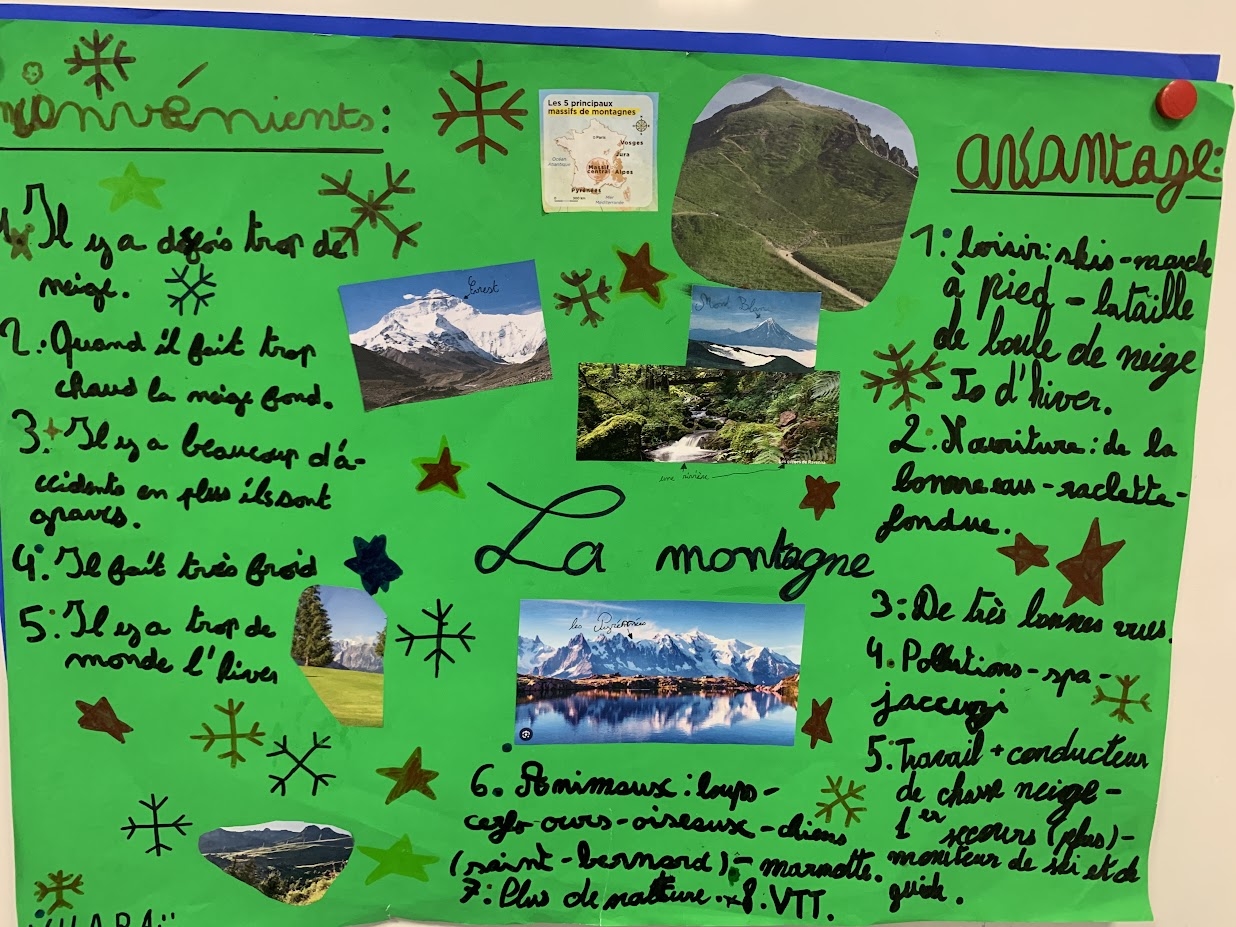 inconvénients:
1. Il y a défois trop de
neige.
2. Quand il fait trop
chaud la neige fond.
3. Il y a beaucoup d'a-
ccidents en plus ils sont
graves.
4. Il fait très froid
5. Il y a trop de
monde l'hiver
Les 5 principaux
massifs de montagnes
Paris
Vosges
Océan
Atlantique
Jura
Massif
central
Alpes
Pyrénées
Mer
Méditerranée
Everest
Mont Blanc
une rivière
La montagne
les Pyrénées
avantage:
1: loisir: skis - marche
à pied - bataille
de boule de neige
- Jo d'hiver.
2: Nourriture: de la
bonne eau - raclette -
fondue.
3: De très bonnes vues.
4. Pollutions - spa -
jaccuzi
5: Travail + conducteur
de chasse neige -
1er secours (plus) -
moniteur de ski et de
guide.
6. Animaux: loups -
ours - oiseaux - chiens
(saint-bernard) - marmotte.
7: Plus de natteure. 8. VTT.